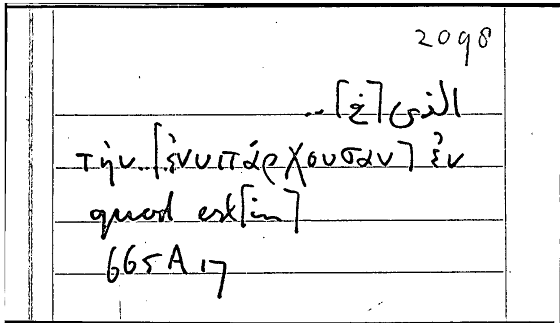 2098
الذى [فى] ..
τὴν..[ἐνυπάρχουσαν] ἐν
quod est [in]
665A17